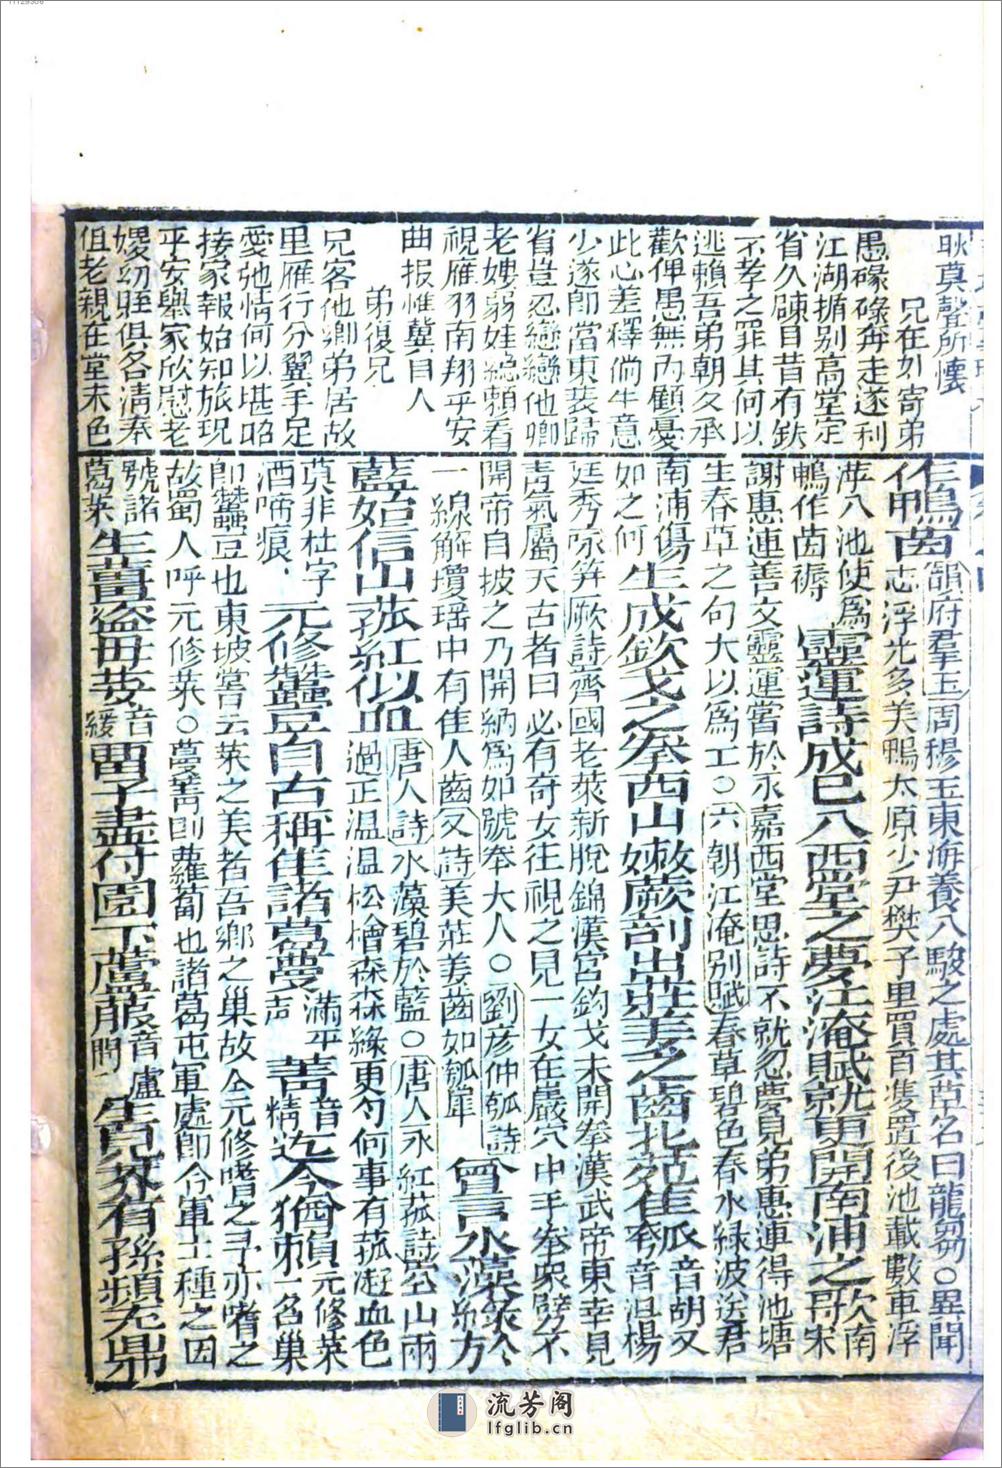 耿莫聲所懷
兄在外寄弟
愚碌碌奔走遂利
江湖揗别高堂定
省久踈目昔有鈌
不孝之罪其何以
逃賴吾弟朝久承
歡俾愚無内顧憂
此心差釋倘生意
少遂卽當東裝歸
省豈忍戀戀他鄉
老嫂弱娃
總賴看
視雁羽南翔平安
曲报惟冀自人
弟復兄
兄客他鄉弟居故
里雁行分翼手足
愛弛情何以堪昭
接家報始知旅况
平安舉家欣慰老
嫂幼姪俱各清泰
伹老親在堂未免
作鴨茵韻府羣玉周穆王東海養八駿之處其草名曰龍芻○異聞
志浮光多美鴨太原少尹樊千里買百隻置後池載數車浮
萍入池使爲鴨作茵褥靈運詩成已入西堂之夢江淹賦就更開南浦之歌南宋
謝惠連善文靈運嘗於永嘉西堂思詩不就忽夢見弟惠連得池塘
生春草之句大以爲工○六朝江淹别賦春草碧色春水綠波送君
南浦傷如之何生成鈎戈之拳西山嫩蕨剖出莊姜之齒北苑隹瓠音胡又音温楊
廷秀咏笋蕨詩齊國老萊新脫錦漢宮鈎戈未開拳漢武帝東幸見
靑氣屬天古者曰必有奇女往視之見一女在巖穴中手拳衆擘不
開帝自披之乃開納爲如號拳大人○劉彦仲瓠詩
一線解瓊瑶中有隹人齒又詩美莊姜齒如瓠犀曾言水藻綠於方
藍始信山菰紅似血唐人詩水藻碧於藍○唐人永紅菰詩空山雨
過正温温松檜森森綠更匀何事有菰遊血色
莫非杜宇酒啼痕元修蠶豆百古稱隹諸葛蔓菁滿平声音精迄今猶頼元修菜一名巢
卽蠶豆也東坡嘗云菜之美者吾鄉之巢故仝元修嗜之予亦嗜之
故蜀人呼元修菜○蔓菁卽蘿蔔也諸葛屯軍處卽令軍士種之因
號諸葛菜生薑盗母荽音綏留子盡付園丁蘆菔音盧閗生兒芥有孫頻充鼎
流芳阁
lfglib.cn